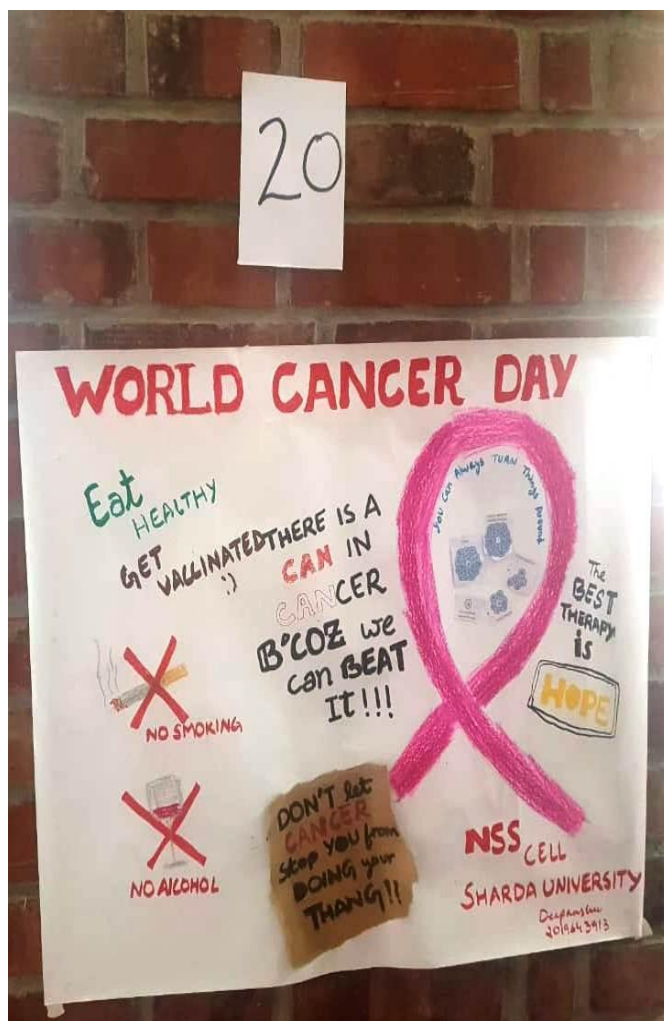 20
WORLD CANCER DAY
Eat
HEALTHY
GET VACCINATED
:)
THERE IS A
CAN IN
CANCER
B'COZ we
can BEAT
It!!!
You Can Always TURN Things Around
The
BEST
THERAPY
is
HOPE
NO SMOKING
NO ALCOHOL
DON'T let
CANCER
Stop YOU from
DOING your
THANG!!
NSS CELL
SHARDA UNIVERSITY
Deepanshu